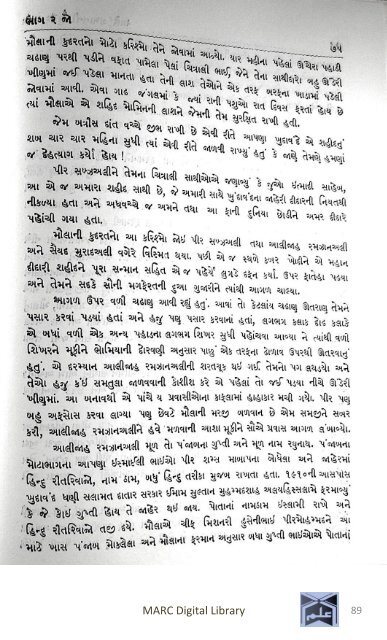 ભાગ ૨ જો
૭૫
મૌલાની કુદરતનો મોટો કરિશ્મો તેને જોવામાં આવ્યો. ચાર મહીના પહેલાં ઉચેરા પહાડી
ચઢાણ પરથી પડીને વફાત પામેલા પેલાં ચિત્રાલી ભાઈ, જેને તેના સાથીદારો બહુ ઊંડેરી
ખીણુમાં જઈ પડેલા માનતા હતા તેની લાશ તેઓને એક તરફ બરફના ખાડામાં પડેલી
જોવામાં આવી. એવા ગાઢ જંગલમાં કે જ્યાં રાની પશુઓ રાત દિવસ ફરતાં હોય છે
ત્યાં મૌલાએ એ શહિદ મોમિનની લાશને જેમની તેમ સુરક્ષિત રાખી હતી.
જેમ બત્રીસ દાંત વચ્ચે જીભ રાખી છે એવી રીતે આપણા ખુદાવંદે એ શહીદનું
શબ ચાર ચાર મહિના સુધી ત્યાં એવી રીતે જાળવી રાખ્યું હતું કે જાણે તેમણે હમણાં
જ દેહત્યાગ કર્યો હોય !
પીર સબ્ઝઅલીને તેમના ચિત્રાલી સાથીઓએ જણાવ્યું કે જુઓ ઇત્માદી સાહેબ,
આ એ જ અમારા શહીદ સાથી છે, જે અમારી સાથે ખુદાવંદના જાહેરી દીદારની નિયતથી
નીકળ્યા હતા અને અધવચ્ચે જ અમને તથા આ ફાની દુનિયા છોડીને અમર દીદારે
પહોંચી ગયા હતા.
મૌલાની કુદરતનો આ કરિશ્મો જોઈ પીર સબ્ઝઅલી તથા આલીજાહ રમઝાનઅલી
અને સૈયદ મુરાદઅલી વગેરે વિસ્મિત થયા. પછી એ જ સ્થળે કબર ખોદીને એ મહાન
દીદારી શહીદને પૂરા સન્માન સહિત એ જ પહેરેલે લુગડે દફન કર્યા. ઉપર ફાતેહા પઢવા
અને તેમને સદકે સૌની મગફરતની દુઆ ગુજારીને ત્યાંથી આગળ ચાલ્યા.
આગળ ઉપર વળી ચઢાણ આવી રહ્યું હતું. આવાં તો કેટલાંય ચઢાણ ઊતરાણ તેમને
પસાર કરવાં પડયાં હતાં અને હજુ પણ પસાર કરવાનાં હતાં, લગભગ કલાક દોઢ કલાકે
એ બધાં વળી એક અન્ય પહાડના લગભગ શિખર સુધી પહોંચવા આવ્યા ને ત્યાંથી વળી
શિખરને મૂકીને ભોમિયાની દોરવણી અનુસાર પાછું એક તરફના ઢોળાવ ઉપરથી ઊતરવાનું
હતું. એ દરમ્યાન આલીજાહ રમઝાનઅલીની શરતચૂક થઈ ગઈ. તેમનો પગ લચકયો અને
તેઓ હજુ કંઈ સમતુલા જાળવવાની કોશીશ કરે એ પહેલાં તો જઈ પડયા નીચે ઊંડેરી
ખીણુમાં. આ બનાવથી એ પાંચે ય પ્રવાસીઓના કાફલામાં હાહાકાર મચી ગયો. પીર પણ
બહુ અફસોસ કરવા લાગ્યા પણ છેવટે મૌલાની મરજી બળવાન છે એમ સમજીને સબર
કરી, આલીજાહ રમઝાનઅલીને હવે મળવાની આશા મૂકીને સૌએ પ્રવાસ આગળ લંબાવ્યો.
આલીજાહ રમઝાનઅલી મૂળ તો પંજાબના ગુપ્તી અને મૂળ નામ રઘુનાથ. પંજાબના
મોટાભાગના આપણા ઇસ્માઈલી ભાઈઓ પીર શમ્સ બાબાપના બોધેલા અને જાહેરમાં
હિન્દુ રીતરિવાજો, નામ ઠામ, બધું હિન્દુ તરીકા મુજબ રાખતા હતા. ૧૯૧૦ની આસપાસ
ખુદાવંદ ધણી સલામત દાતાર સરકાર ઇમામ સુલ્તાન મુહમ્મદશાહ અલયહિસ્સલામે ફરમાવ્યું
કે જે કોઈ ગુપ્તી હોય તે જાહેર થઈ જાય. પોતાનાં નામઠામ ઇસ્લામી રાખે અને
હિન્દુ રીતરિવાજો તજી દીયે. મૌલાએ ચીફ મિશનરી હુસેનીભાઈ પીરમોહમ્મદને આ
માટે ખાસ પંજાબ મોકલેલા અને મૌલાના ફરમાન અનુસાર બધા ગુપ્તી ભાઈઓએ પોતાનાં
MARC Digital Library
89